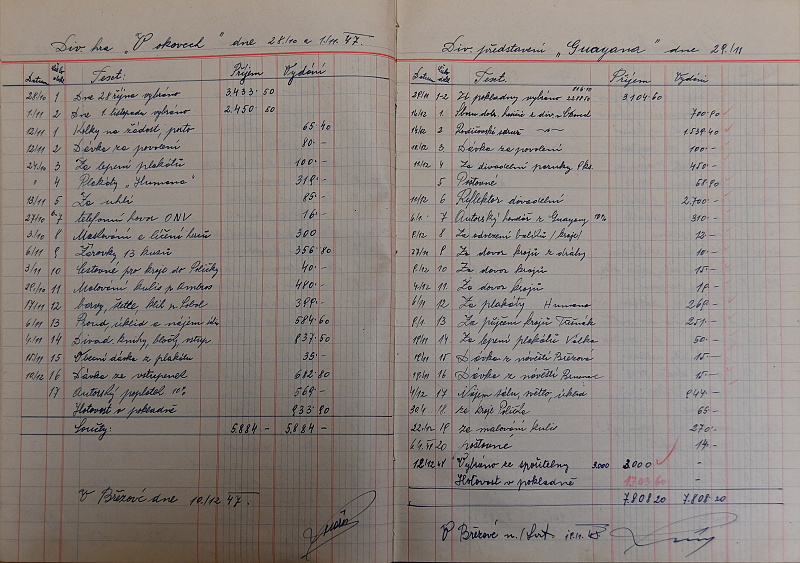 Div. hra "V okovech" dne 28/10 a 1/11 47.
Datum Text: Příjem Vydání
28/10 1 Dne 28 října vybráno 3.433·50
1/11 2 Dne 1 listopadu vybráno 2.450·50
12/11 1 Kolky na žádost, porto 65·40
12/11 2 Dávka za povolení 80·-
3 Za lepení plakátů 100·-
" 4 Plakáty "Humana" 319·-
13/11 5 Za uhlí 85·-
27/10 telefonní hovor ONV 16·-
3/10 8 Maskování a líčení herců 300
6/11 9 Žárovky 13 kusů 356·80
3/11 10 Cestovné pro kroje do Poličky 40·-
11 Malování kulis p. Ambros 480·-
17/11 12 barvy, štětce, klih p. Sobol 399·-
6/11 13 Proud, úklid a nájem sálu 584·60
4/11 14 Divad. knihy, bločky, vstup. 837·50
15/11 15 Obecní dávka z plakátu 35·-
10/12 16 Dávka ze vstupenek 682·80
17 Autorský poplatek 10% 569·-
Hotovost v pokladně 933·90
Součty: 5.884 - 5.884 -
V Březové dne 10/12 47.
Div. představení "Guayana" dne 29/11
Datum Text. Příjem Vydání
29/11 1-2 Z pokladny vybráno 3.104·60
14/12 1. 700·90
14/12 2. Rodičovské sdruž. 1.539·40
10/12 3. Dávka za povolení 100·-
4 Za divadelní paruky Pks. 450·-
5 Poštovné 68·90
10/12 6 Reflektor 2.700·-
7 Autorský honorář z Guayany 10% 310·-
8 Za odvezení balíků /kroje/ 12·-
27/11 9 Za dovoz krojů z dráhy 10·-
10 Za dovoz krojů 15·-
4/12 11 Za dovoz krojů
6/11 12 Za plakáty Humana 269·-
13 Za půjčení krojů 251·-
19/11 14 Za lepení plakátů Válka 50·-
19/11 15 Dávka z návěští Březová 15·-
19/11 16 Dávka z návěští Brněnec 15·-
4/12 17 Nájem sálu, světlo, úklid 944·-
30/4 18 za kroje Polička 65·-
19 za malování kulis 270·-
20 poštovné 14·-
12/12 48 Vybráno ze spořitelny 3.000 3.000 -
Hotovost v pokladně 1703 60 -
7.808 20 7.808 20
V Březové n./Svit.